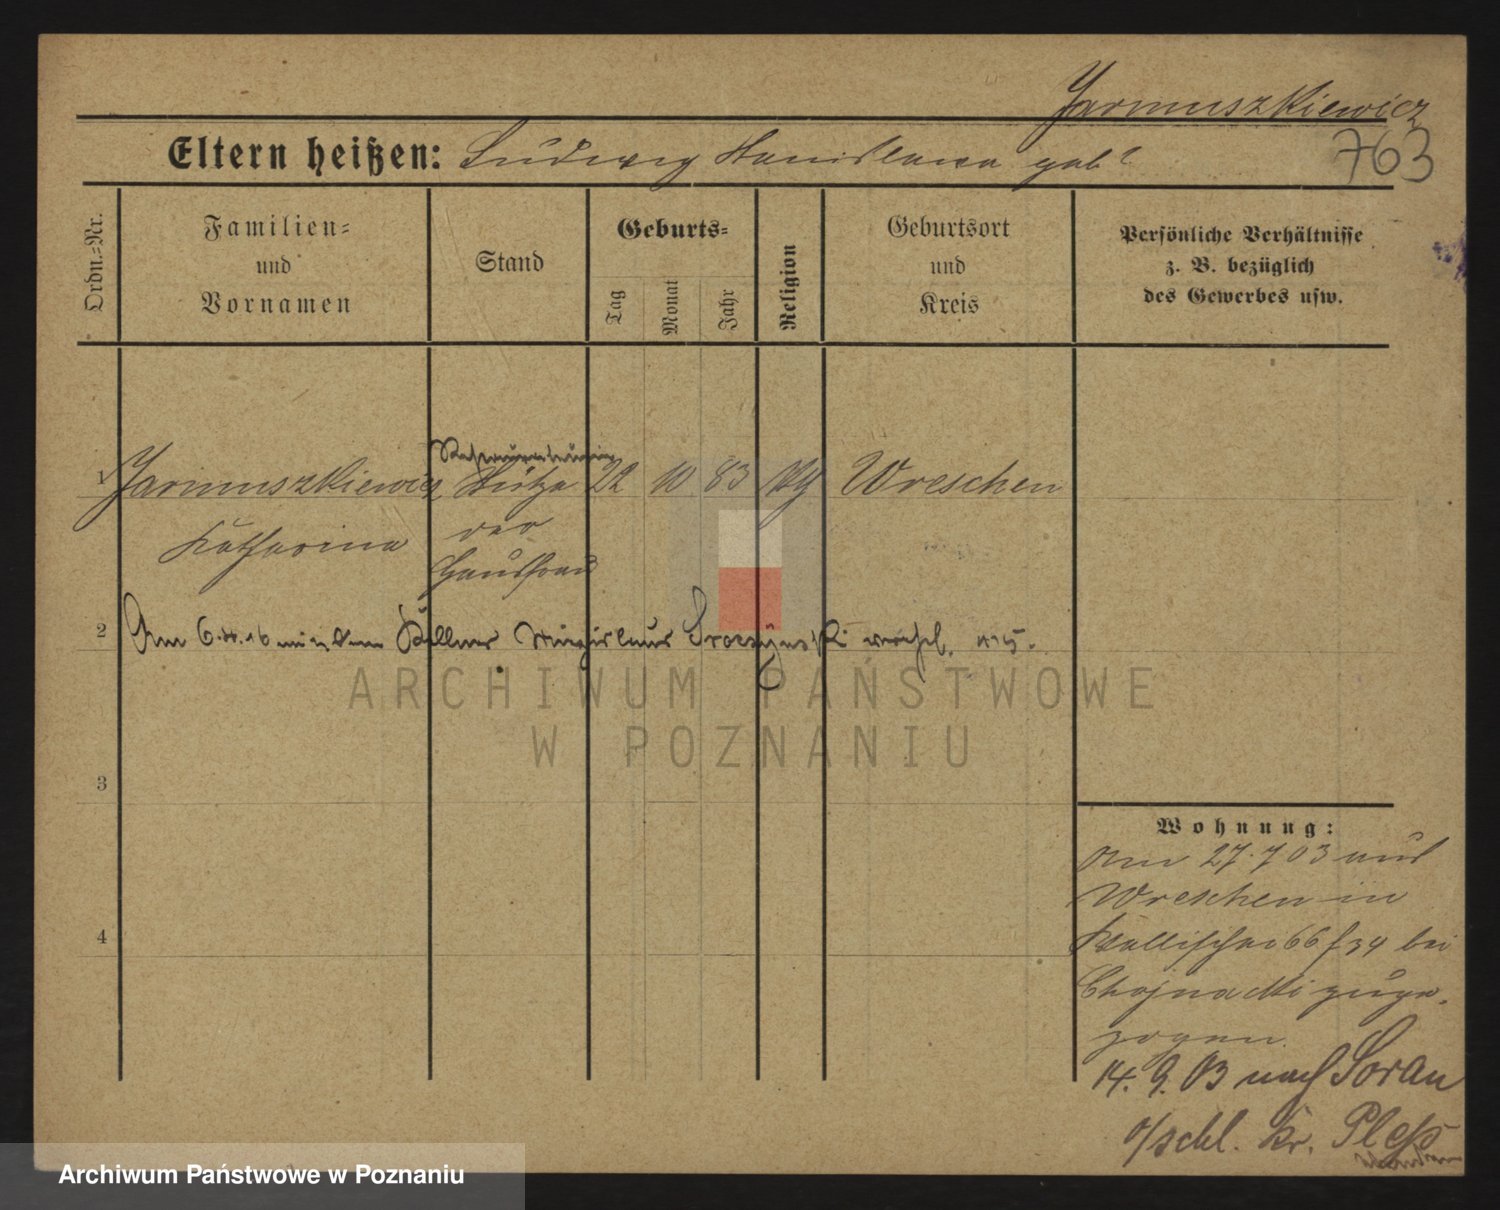 Jarmuszkiewicz
763
Eltern heißen: Ludwig Stanislawa geb?
Ordn.-Nr.
Familien-
und
Vornamen
Stand
Geburts-
Tag
Monat
Jahr
Religion
Geburtsort
und
Kreis
Persönliche Verhältnisse
z. B. bezüglich
des Gewerbes usw.
1 Jarmuszkiewicz Stütze 22 10 83 Wreschen
Katharina der
Hausfrau
2 Am 6. 16 mit dem Kellner verehel.
3
4
Wohnung:
Am 27.7 03 aus
Wreschen in
Wallischei 66 f 34 bei
Chojnacki zuge-
zogen.
14. 9. 03 nach Sorau
o/schl. Kr. Pleß
ARCHIWUM PAŃSTWOWE
W POZNANIU
Archiwum Państwowe w Poznaniu